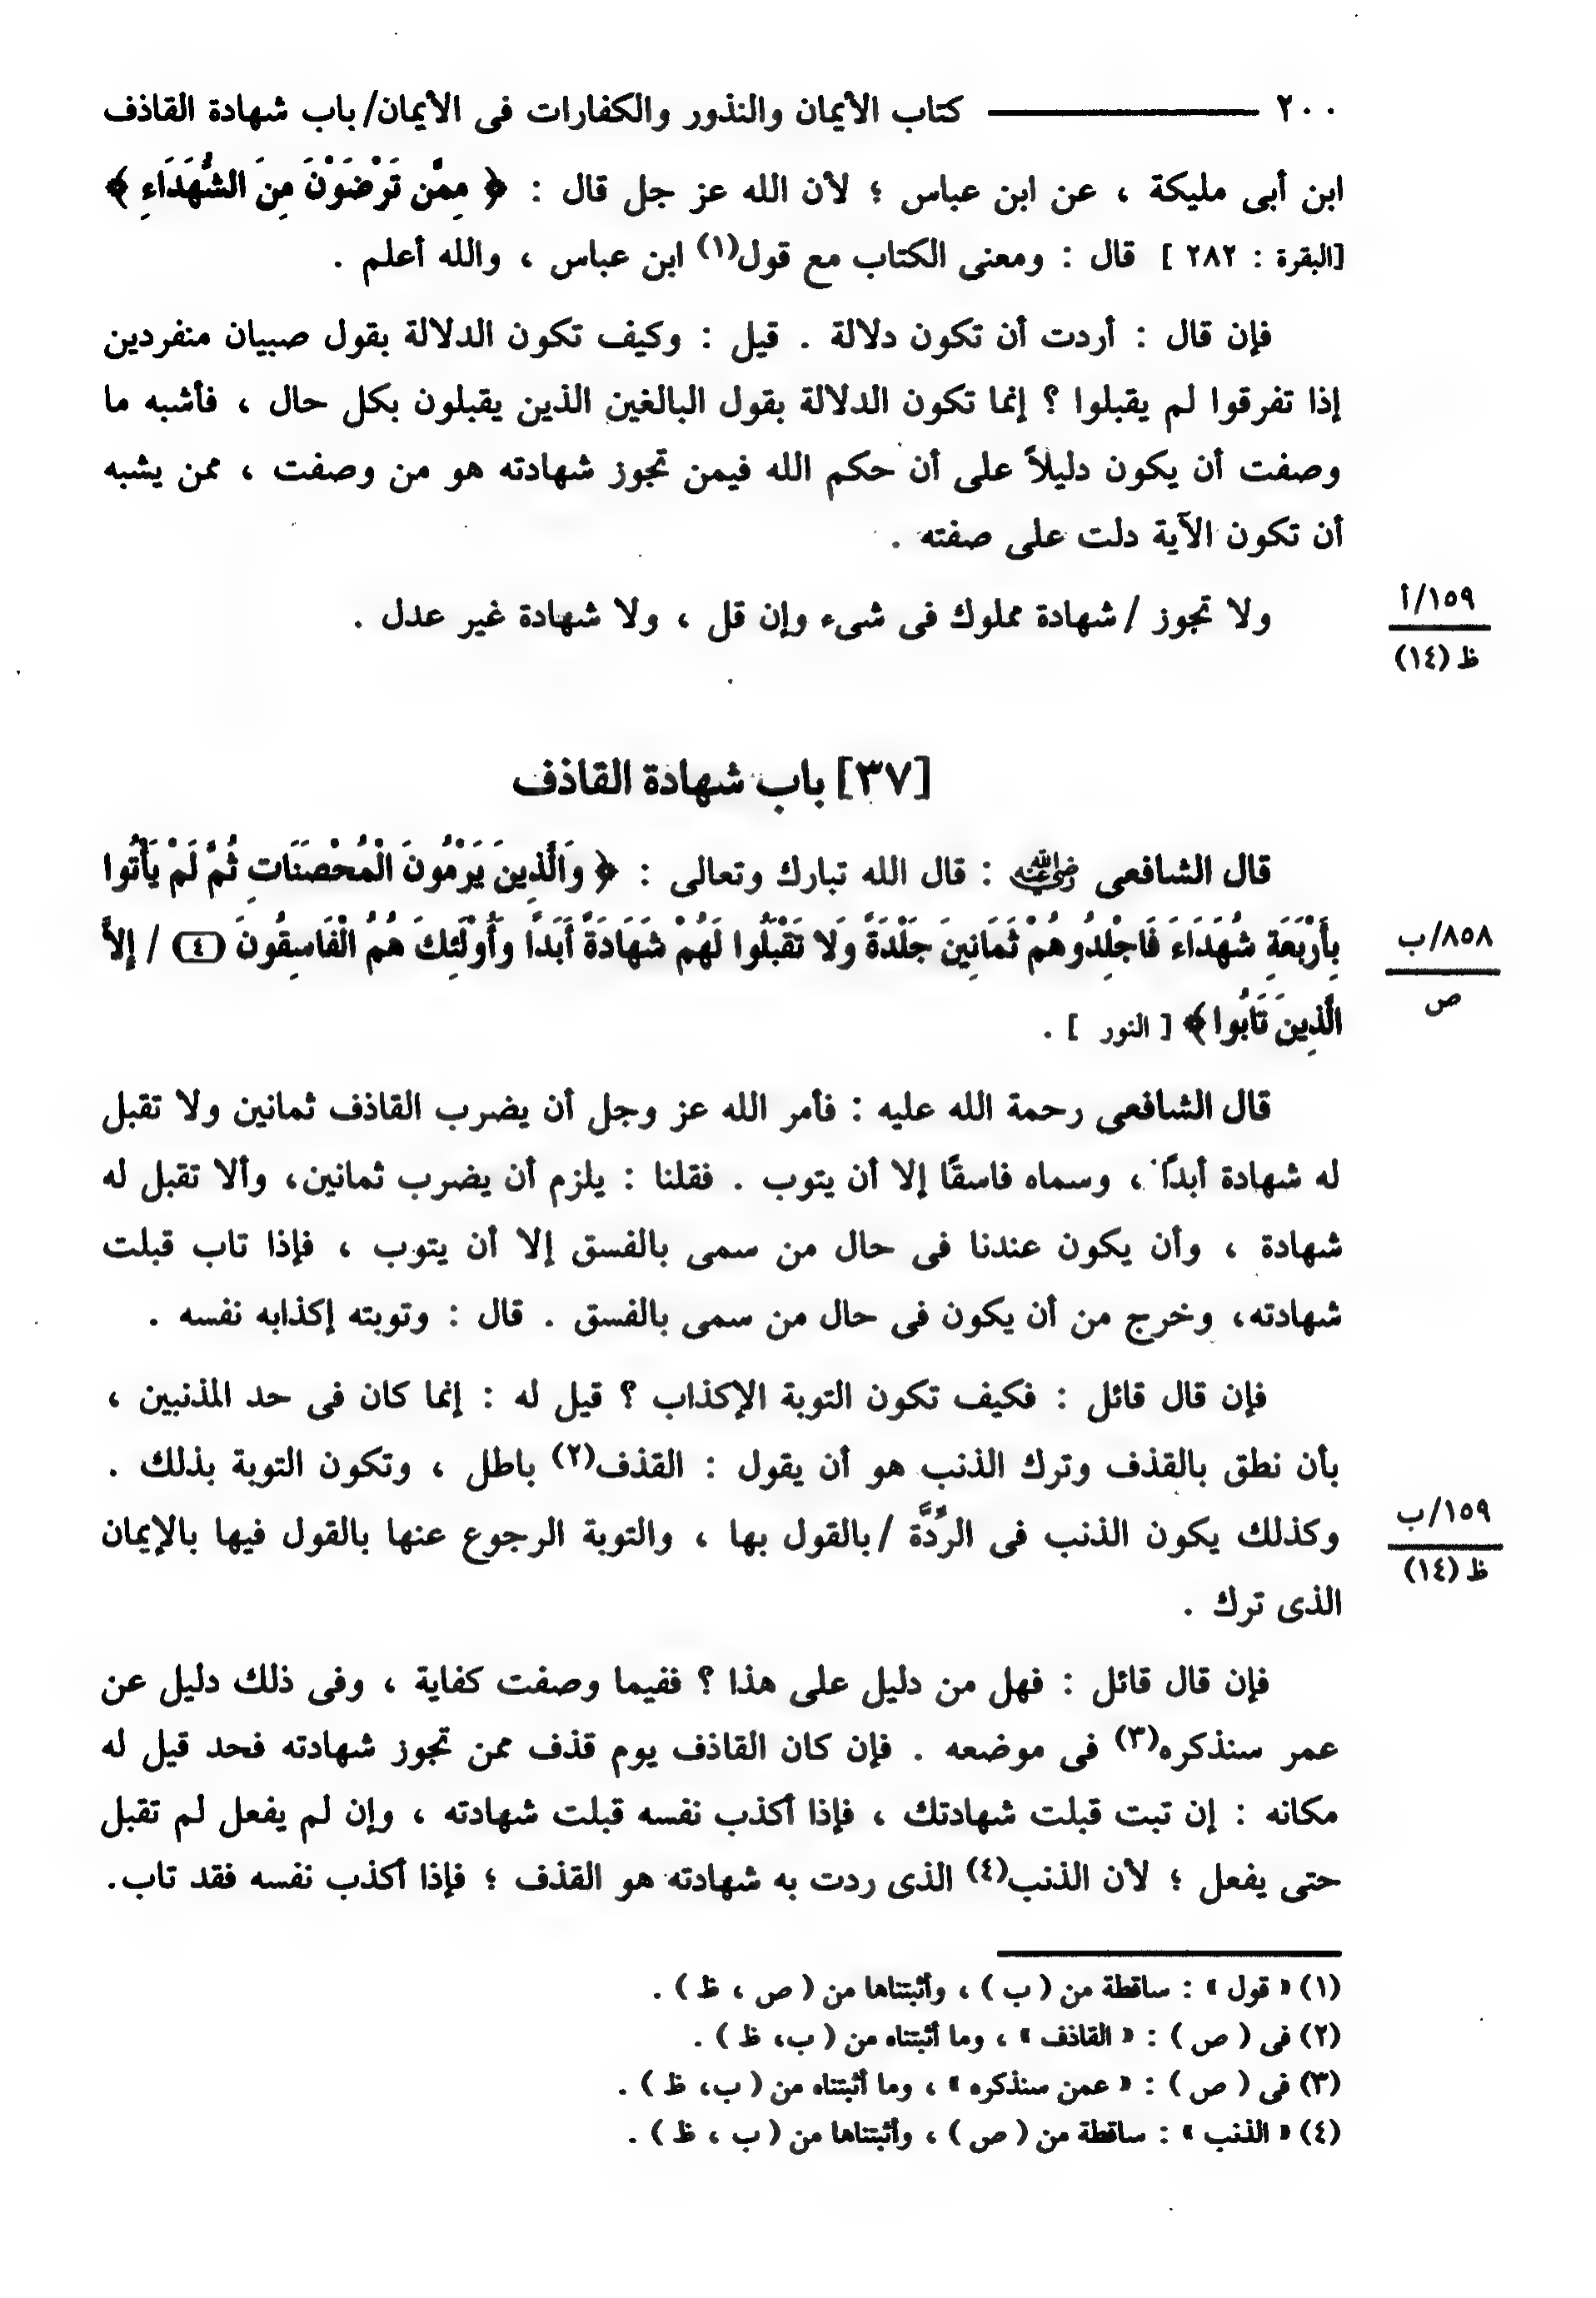 ٢٠٠ ــــــــــــ كتاب الأيمان والنذور والكفارات فى الأيمان/ باب شهادة القاذف
ابن أبى مليكة ، عن ابن عباس ؛ لأن الله عز جل قال : ﴿ مِمَّن تَرْضَوْنَ مِنَ الشُّهَدَاءِ ﴾
[البقرة : ٢٨٢ ] قال : ومعنى الكتاب مع قول(١) ابن عباس ، والله أعلم .
فإن قال : أردت أن تكون دلالة . قيل : وكيف تكون الدلالة بقول صبيان منفردين
إذا تفرقوا لم يقبلوا ؟ إنما تكون الدلالة بقول البالغين الذين يقبلون بكل حال ، فأشبه ما
وصفت أن يكون دليلاً على أن حكم الله فيمن تجوز شهادته هو من وصفت ، ممن يشبه
أن تكون الآية دلت على صفته .
ولا تجوز / شهادة مملوك فى شىء وإن قل ، ولا شهادة غير عدل .
١٥٩/أ
ظ (١٤)
[٣٧] باب شهادة القاذف
قال الشافعى رضي الله عنه : قال الله تبارك وتعالى : ﴿ وَالَّذِينَ يَرْمُونَ الْمُحْصَنَاتِ ثُمَّ لَمْ يَأْتُوا
بِأَرْبَعَةِ شُهَدَاءَ فَاجْلِدُوهُمْ ثَمَانِينَ جَلْدَةً وَلا تَقْبَلُوا لَهُمْ شَهَادَةً أَبَدًا وَأُوْلَئِكَ هُمُ الْفَاسِقُونَ (٤) / إِلاَّ
٨٥٨/ب
ص
الَّذِينَ تَابُوا ﴾ [ النور ] .
قال الشافعى رحمة الله عليه : فأمر الله عز وجل أن يضرب القاذف ثمانين ولا تقبل
له شهادة أبدًا ، وسماه فاسقًا إلا أن يتوب . فقلنا : يلزم أن يضرب ثمانين، وألا تقبل له
شهادة ، وأن يكون عندنا فى حال من سمى بالفسق إلا أن يتوب ، فإذا تاب قبلت
شهادته، وخرج من أن يكون فى حال من سمى بالفسق . قال : وتوبته إكذابه نفسه .
فإن قال قائل : فكيف تكون التوبة الإكذاب ؟ قيل له : إنما كان فى حد المذنبين ،
بأن نطق بالقذف وترك الذنب هو أن يقول : القذف(٢) باطل ، وتكون التوبة بذلك .
وكذلك يكون الذنب فى الرِّدَّة / بالقول بها ، والتوبة الرجوع عنها بالقول فيها بالإيمان
١٥٩/ب
ظ (١٤)
الذى ترك .
فإن قال قائل : فهل من دليل على هذا ؟ ففيما وصفت كفاية ، وفى ذلك دليل عن
عمر سنذكره(٣) فى موضعه . فإن كان القاذف يوم قذف ممن تجوز شهادته فحد قيل له
مكانه : إن تبت قبلت شهادتك ، فإذا أكذب نفسه قبلت شهادته ، وإن لم يفعل لم تقبل
حتى يفعل ؛ لأن الذنب(٤) الذى ردت به شهادته هو القذف ؛ فإذا أكذب نفسه فقد تاب.
(١) « قول » : ساقطة من ( ب ) ، وأثبتناها من ( ص ، ظ ) .
(٢) فى ( ص ) : « القاذف » ، وما أثبتناه من ( ب، ظ ) .
(٣) فى ( ص ) : « عمن سنذكره » ، وما أثبتناه من ( ب، ظ ) .
(٤) « الذنب » : ساقطة من ( ص ) ، وأثبتناها من ( ب ، ظ ) .